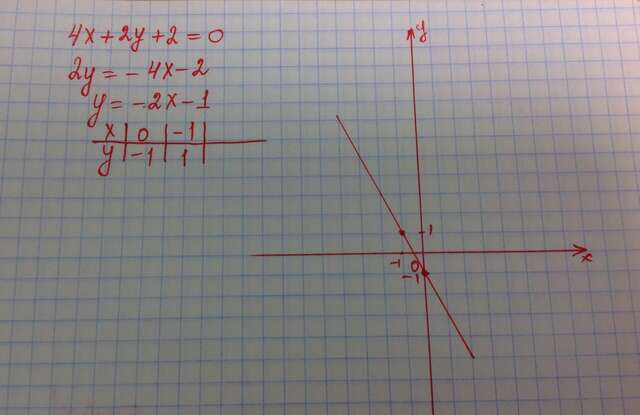 4x+2y+2=0
2y=-4x-2
y=-2x-1
x | 0 | -1 |
y | -1 | 1 |
y
1
-1 0 x
-1